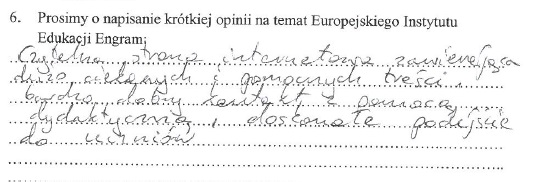 6. Prosimy o napisanie krótkiej opinii na temat Europejskiego Instytutu
Edukacji Engram:
Czytelna strona internetowa zawierająca
dużo ciekawych i pomocnych treści,
bardzo dobry kontakt z pomocą
dydaktyczną, doskonałe podejście
do uczniów